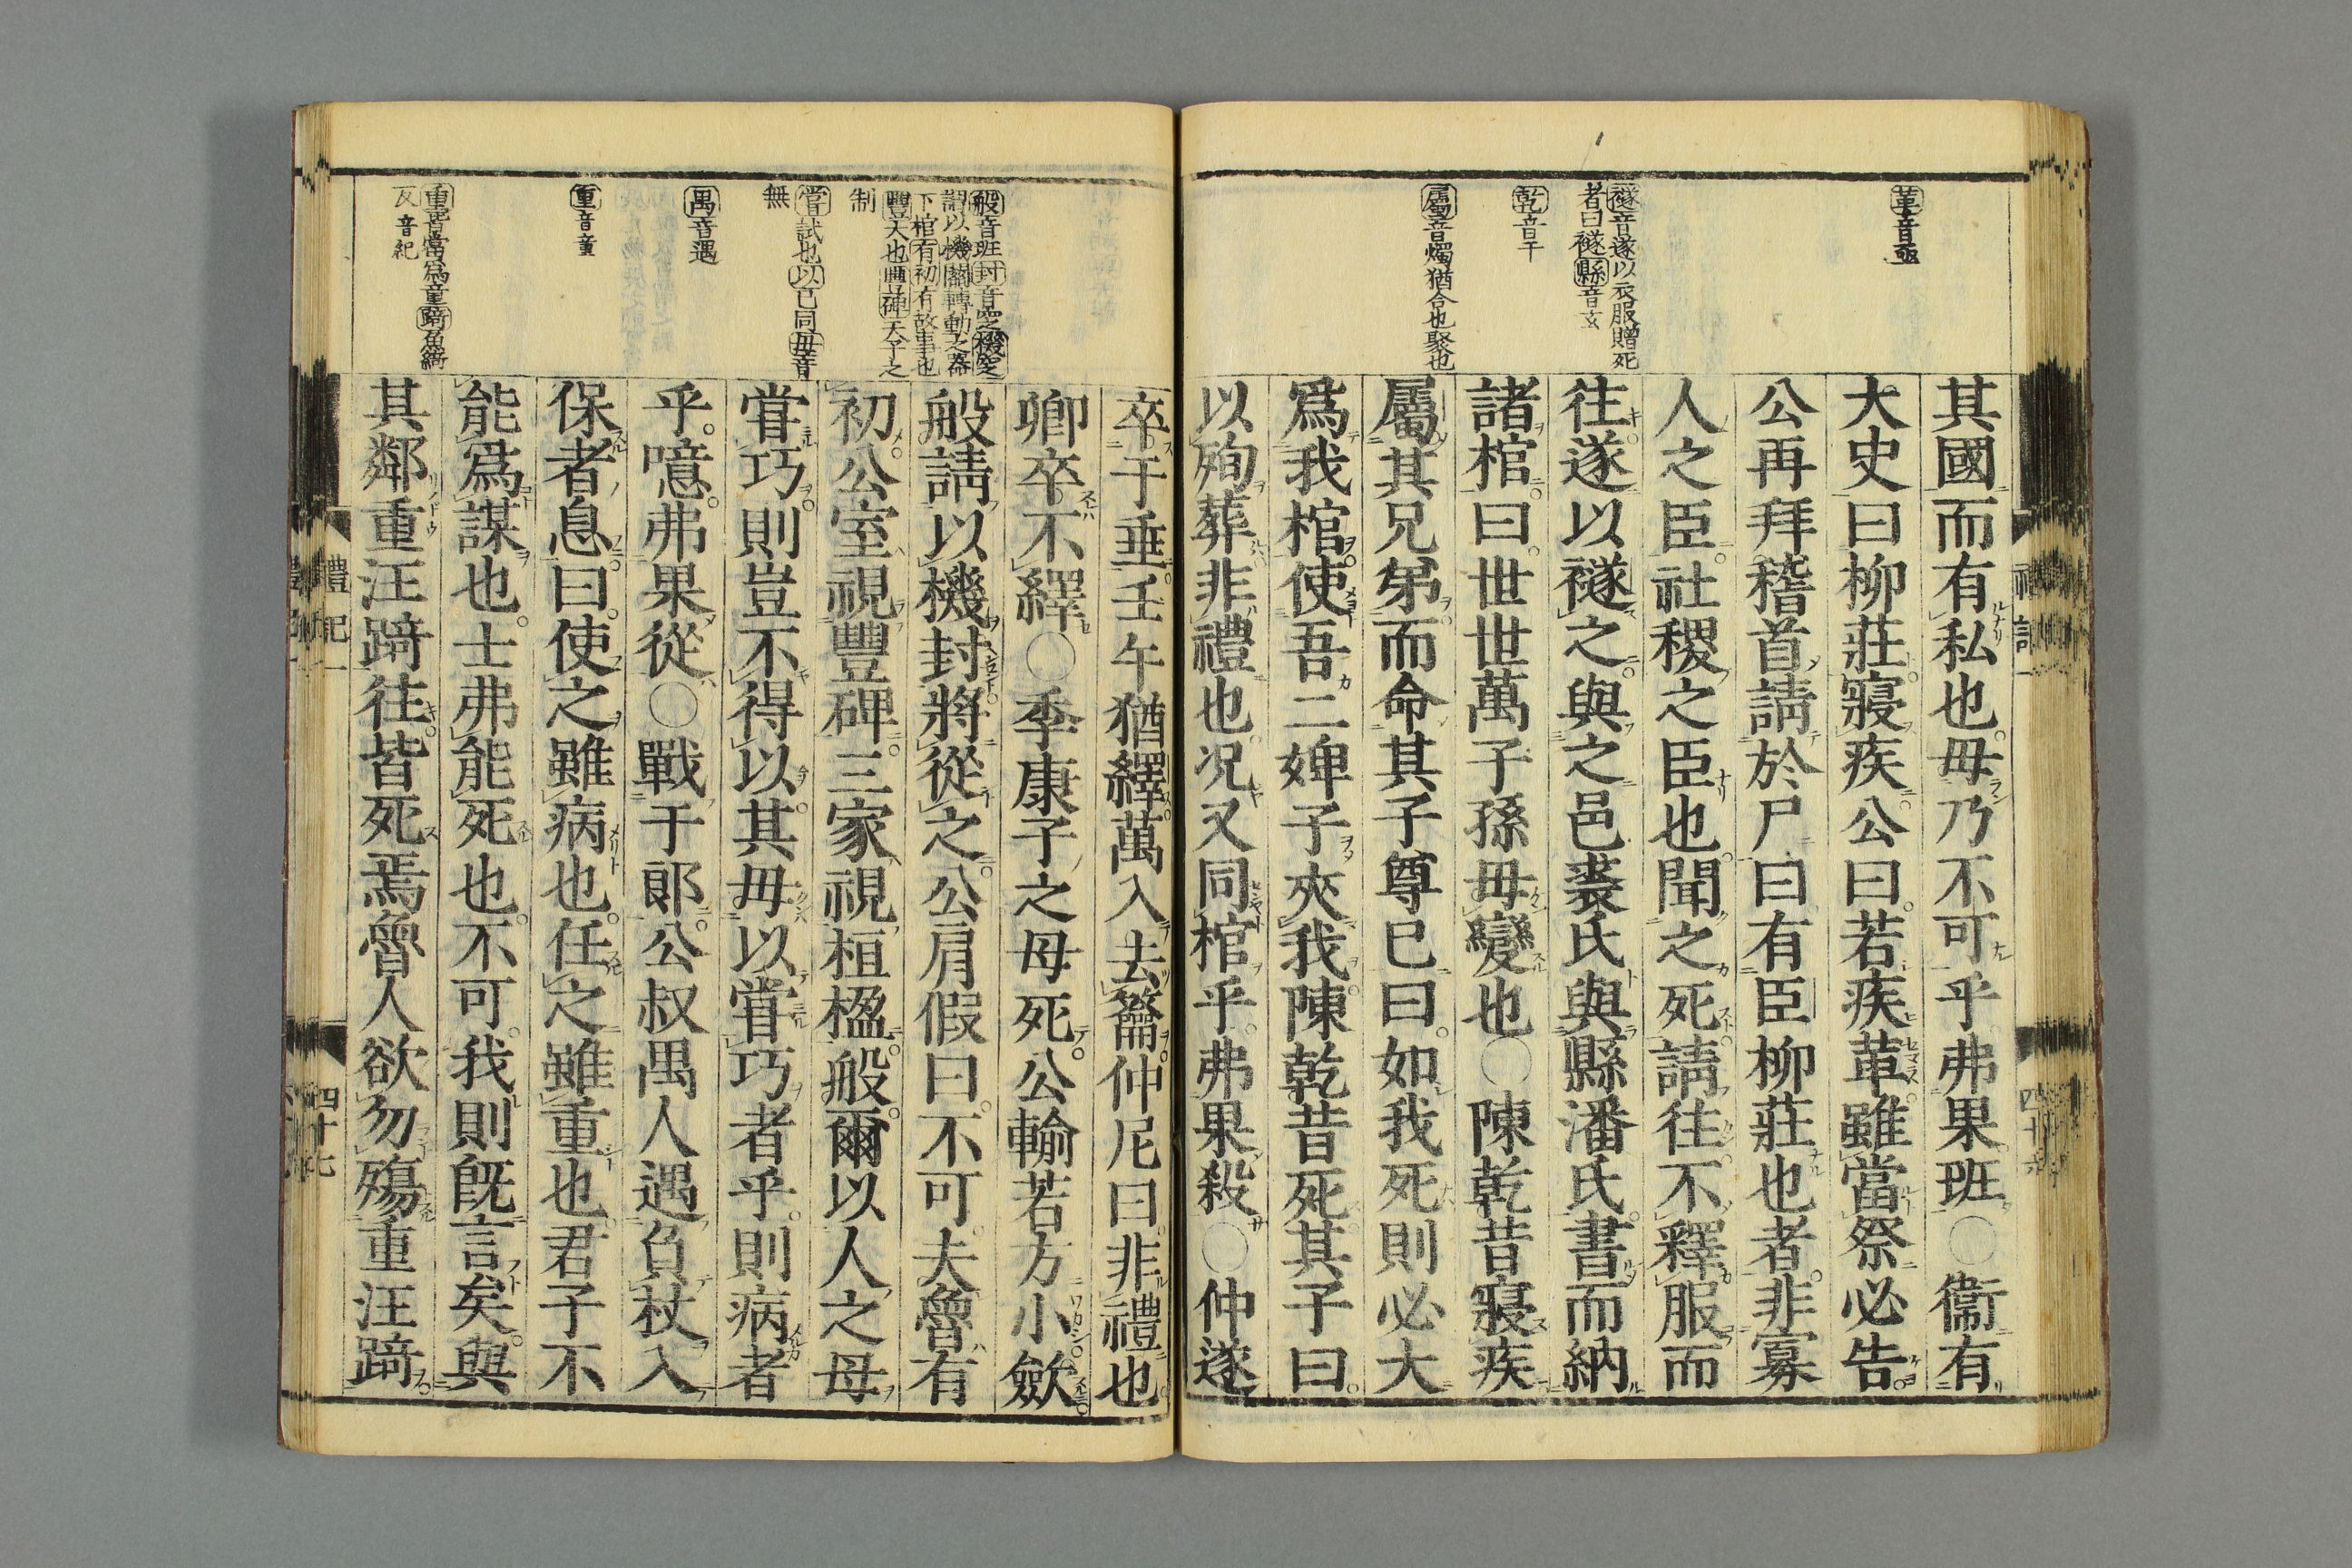 革音亟
襚音遂以衣服贈死
者曰襚縣音玄
乾音干
屬音燭猶合也聚也
其國而有私也毋乃不可乎弗果班〇衞有
大史曰柳莊寢疾公曰若疾革雖當祭必告
公再拜稽首請於尸曰有臣柳莊也者非寡
人之臣社稷之臣也聞之死請往不釋服而
往遂以襚之與之邑裘氏與縣潘氏書而納
諸棺曰世世萬子孫毋變也〇陳乾昔寢疾
屬其兄弟而命其子尊已曰如我死則必大
爲我棺使吾二婢子夾我陳乾昔死其子曰
以殉葬非禮也况又同棺乎弗果殺〇仲遂
般音班封音窆機窆
謂以機關轉動之器
下棺有初有故事也
豐大也豐碑天子之
制
嘗試也以已同毋音
無
禺音遇
重音童
重皆當爲童踦魚綺
反音紀
卒于垂壬午猶繹萬入去籥仲尼曰非禮也
卿卒不繹〇季康子之母死公輸若方小斂
般請以機封將從之公肩假曰不可夫魯有
初公室視豐碑三家視桓楹般爾以人之母
嘗巧則豈不得以其毋以嘗巧者乎則病者
乎噫弗果從〇戰于郎公叔禺人遇負杖入
保者息曰使之雖病也任之雖重也君子不
能爲謀也士弗能死也不可我則既言矣與
其鄰重汪踦往皆死焉魯人欲勿殤重汪踦
禮記一
四十七